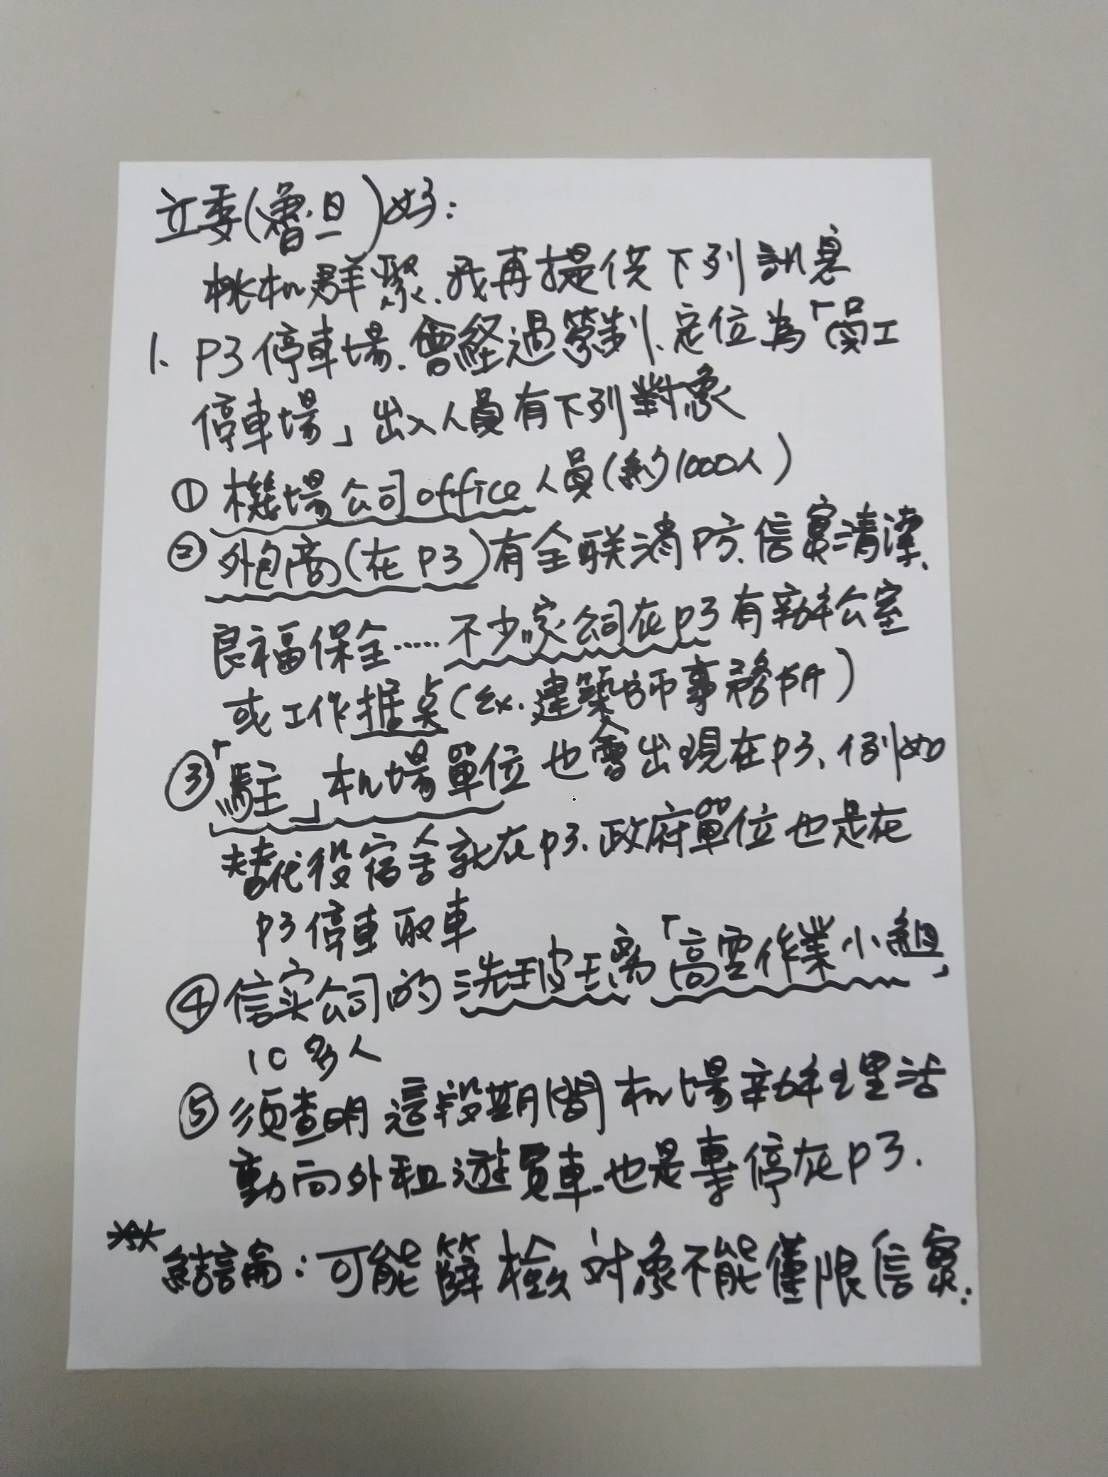 立委(魯.旦)好:
桃机群聚.我再提供下列訊息
1. P3停車場.會經過管制.定位為「員工
停車場」出入人員有下列對象
① 機場公司office人員(約1000人)
② 外包商(在P3)有全联消防.信實清潔.
良福保全.....不少家公司在P3有辦公室
或工作据点(ex.建築師事務所)
③「駐」机場單位也會出現在P3.例如
替代役宿舍就在P3.政府單位也是在
P3停車取車
④ 信实公司的洗玻璃「高空作業小組」
10多人
⑤ 須查明這段期間机場辦理活
動向外租遊覽車.也是專停在P3.
※ 結論:可能篩檢对象不能僅限信實.